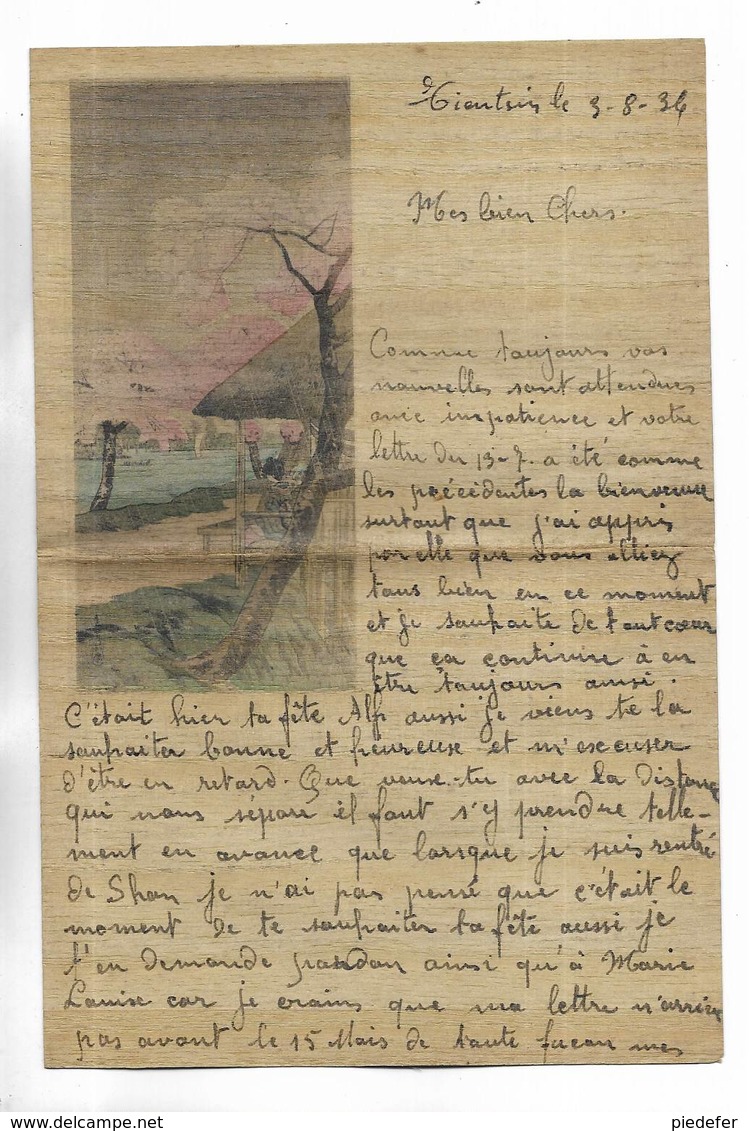 Tientsin le 3-8-36
Mes bien Chers.
Comme toujours vos
nouvelles sont attendues
avec impatience et votre
lettre du 13-7. a été comme
les précédentes la bienvenue
surtout que j'ai appris
par elle que vous alliez
tous bien en ce moment
et je souhaite de tout cœur
que ça continue à en
être toujours ainsi.
C'était hier ta fête Alf aussi je viens te la
souhaiter bonne et heureuse et m'excuser
d'être en retard. Que veux-tu avec la distance
qui nous sépare il faut s'y prendre telle-
ment en avance que lorsque je suis rentré
de Shan je n'ai pas pensé que c'était le
moment de te souhaiter ta fête aussi je
t'en demande pardon ainsi qu'à Marie
Louise car je crains que ma lettre n'arrive
pas avant le 15 Mais de toute façon mes
delcampe.net
piedefer